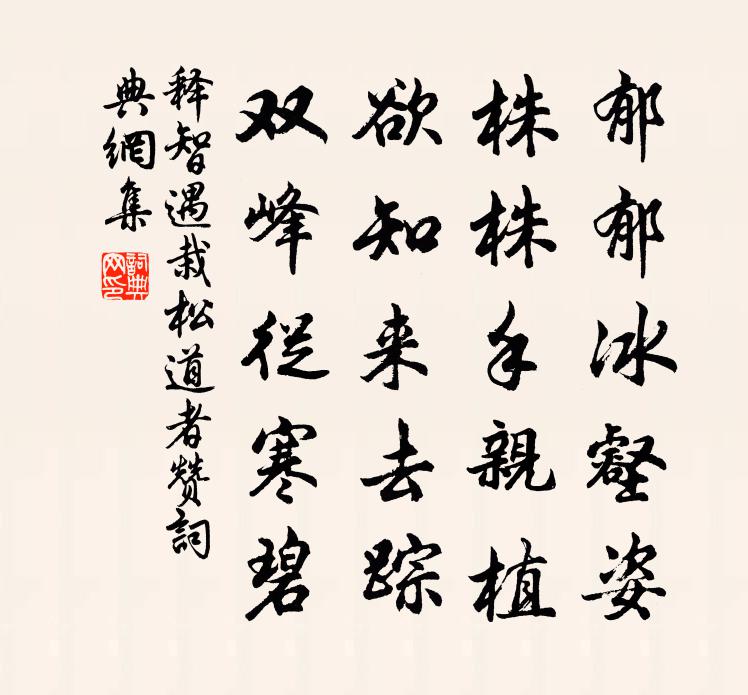 郁郁冰壑姿
株株手親植
欲知来去踪
双峰從寒碧
释智遇栽松道者赞詞
典網集
詞典
网印